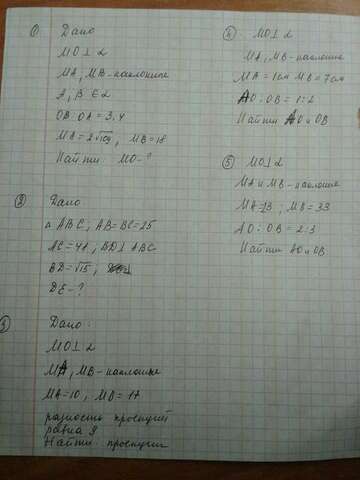 ① Дано
MO⊥α
MA, MB - наклонные
A, B ∈ α
OB:OA = 3:4
MA = 2√109, MB = 18
Найти MO - ?
② Дано
△ ABC, AB = BC = 25
AC = 48, BD ⊥ ABC
BD = √15,
DE - ?
③ Дано:
MO⊥α
MA, MB - наклонные
MA = 10, MB = 17
разность проекций
равна 9
Найти проекции
④ MO⊥α
MA, MB - наклонные
MA = 1см MB = 7см
AO:OB = 1:2
Найти AO и OB
⑤ MO⊥α
MA и MB - наклонные
MB = 33
AO:OB = 2:3
Найти AO и OB